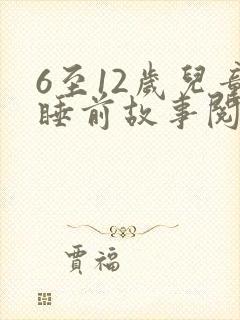 6至12歲兒童
睡前故事閱
賈福